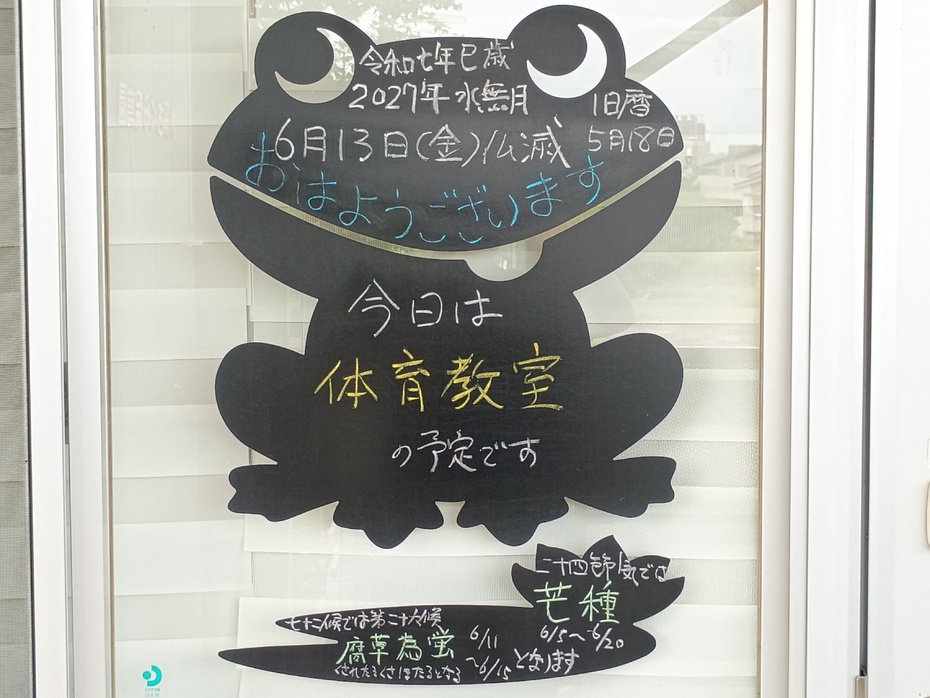 令和七年巳歳
2027年 水無月
旧暦
5月18日
6月13日(金)仏滅
おはようございます
今日は
体育教室
の予定です
二十四節気では
芒種
6/5～6/20
となります
七十二候では第二十六候
腐草為蛍
くされたるくさほたるとなる
6/11
～6/15